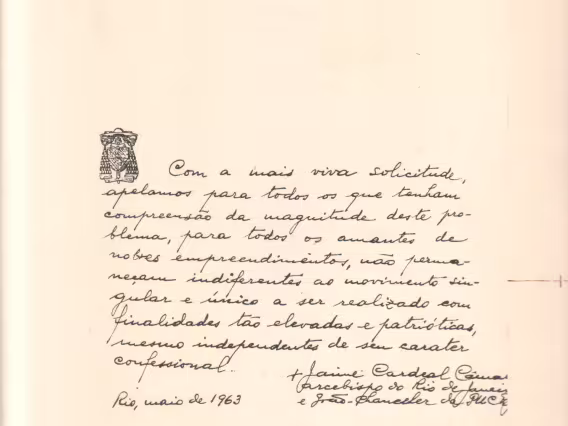 Com a mais viva solicitude,
apelamos para todos os que tenham
compreensão da magnitude deste pro-
blema, para todos os amantes de
nobres empreendimentos, não perma-
neçam indiferentes ao movimento sin-
gular e único a ser realizado com
finalidades tão elevadas e patrióticas,
mesmo independentes de seu carater
confessional.
+ Jaime Cardeal Câmar
arcebispo do Rio de Janeir
Rio, maio de 1963
e Grão-Chanceler da PUC